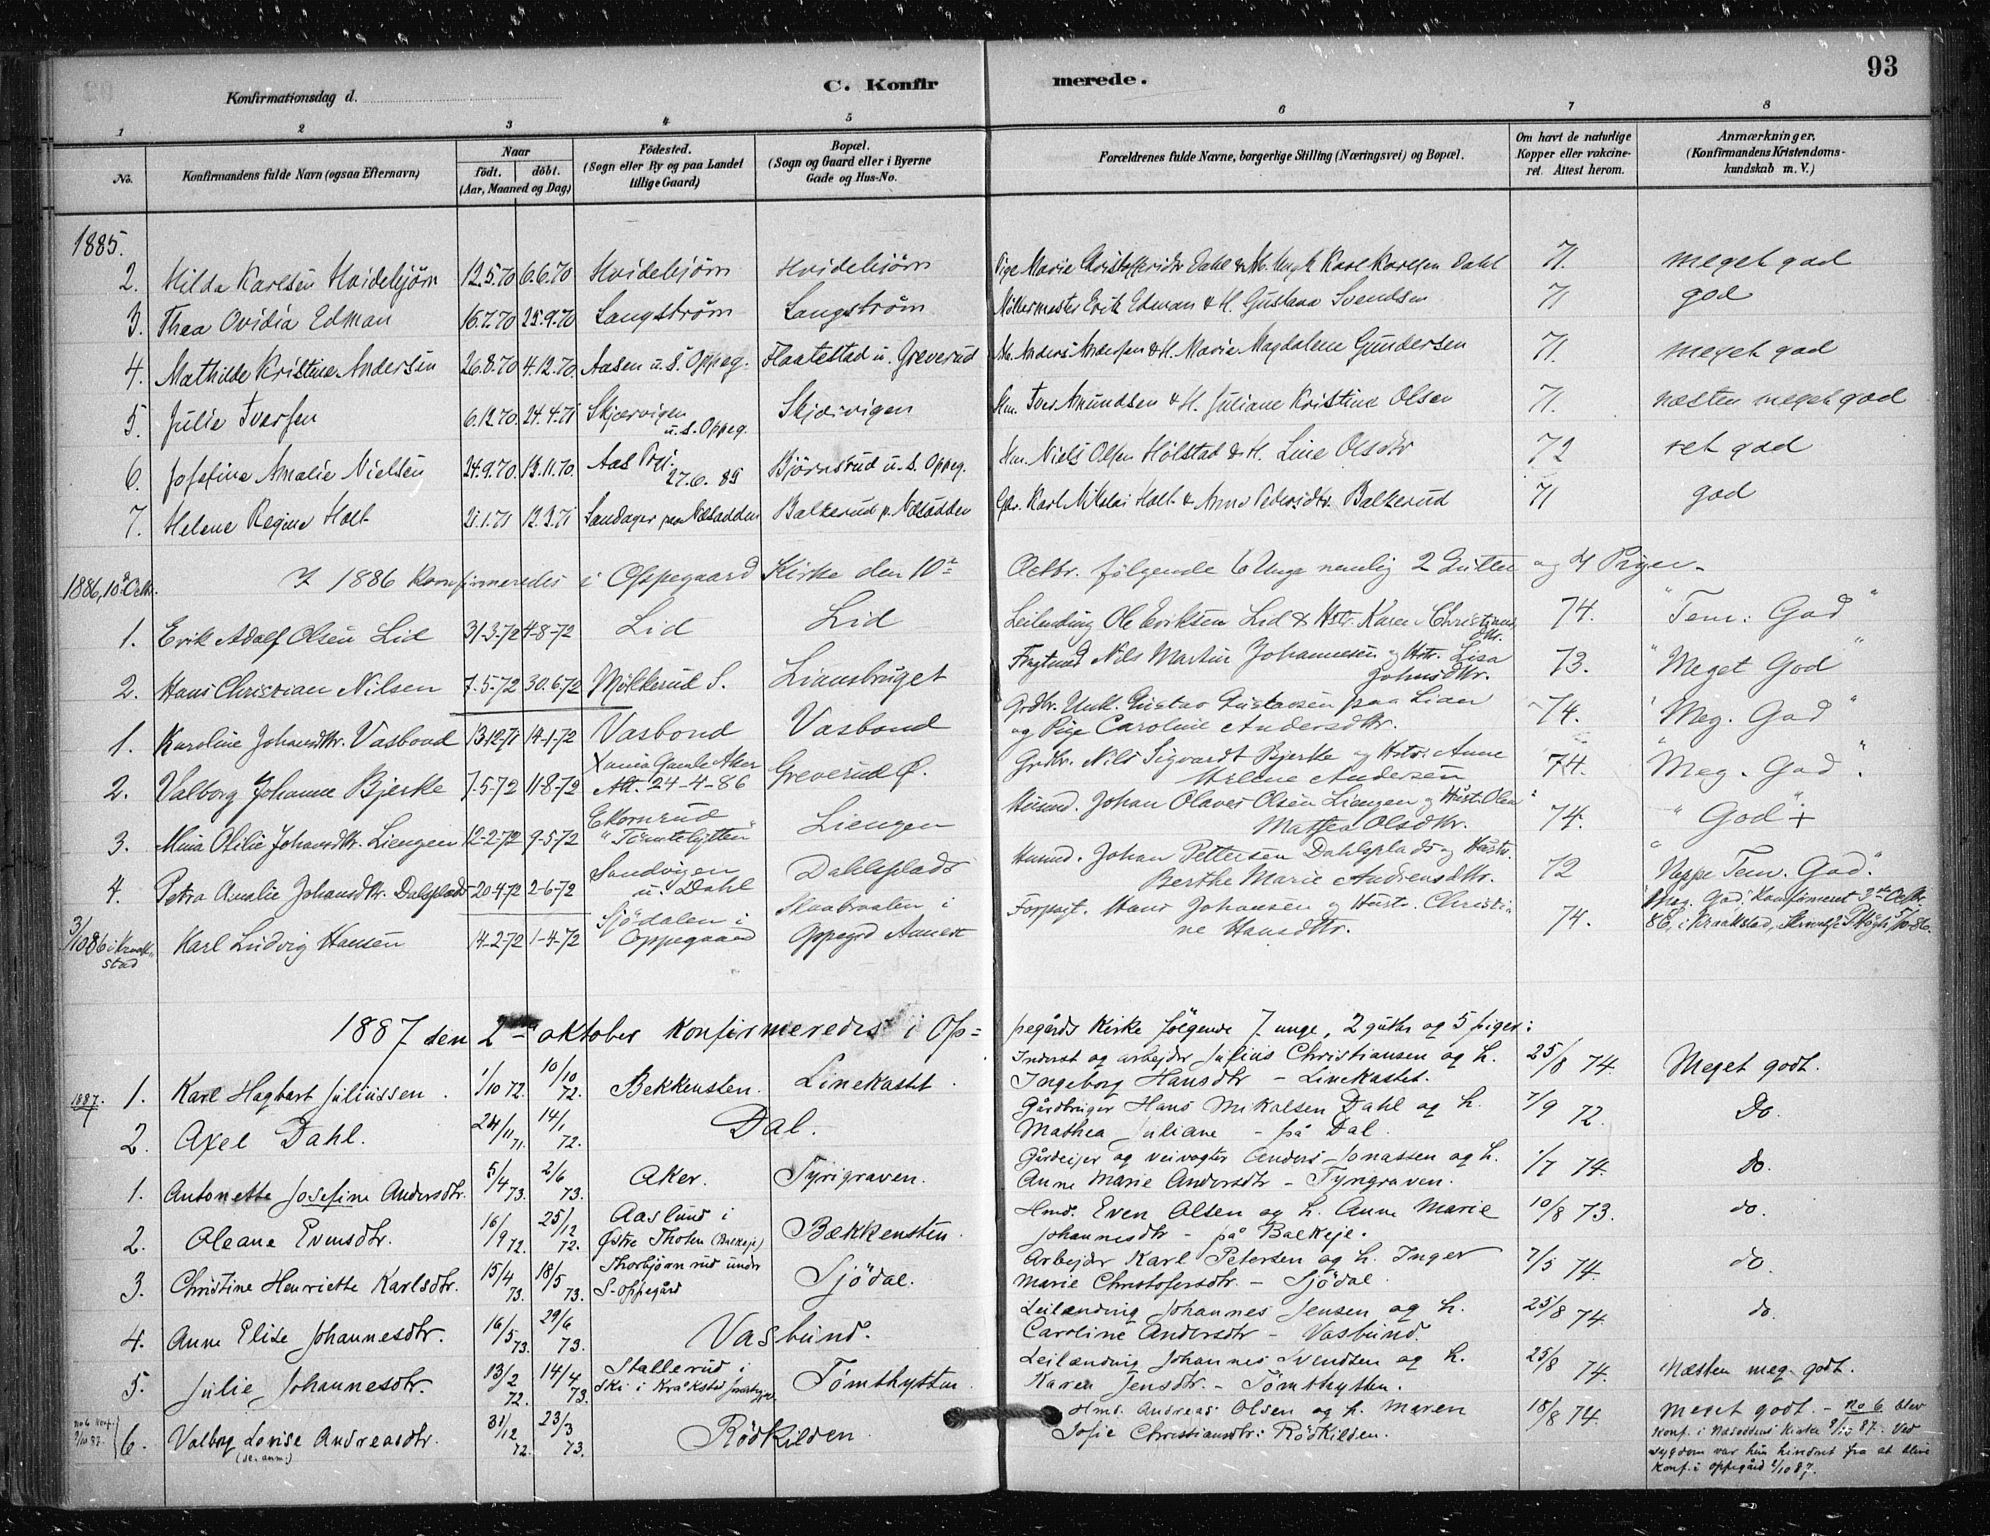 93
C. Konfirmerede.
Konfirmationsdag d.
1 2 3 4 5 6 7 8
No. Konfirmandens fulde Navn (ogsaa Efternavn) Naar født. døbt. (Aar, Maaned og Dag) Födested. (Sogn eller By og paa Landet tillige Gaard) Bopæl. (Sogn og Gaard eller i Byerne Gade og Hus-No. Forældrenes fulde Navne, borgerlige Stilling (Næringsvei) og Bopæl. Om havt de naturlige Kopper eller vakcineret. Attest herom. Anmærkninger. (Konfirmandens Kristendomskundskab m. V.)
1885.
2. Hilda Karlsen Hvidebjørn 12.5.70 6.6.70 Hvidebjørn Hvidebjørn Pige Marie Karl Karlsen Dahl 71. meget god
3. Thea Ovidia Edman 16.7.70 25.9.70 Langstrøm Langstrøm Erik Edman & H. Gustava Svendsen 71 god
4. Mathilde Kristine Andersen 26.8.70 4.12.70 Aasen u. S. Oppeg. Flaatestad u. Greverud Anders Andersen & H. Marie Magdalene Gundersen 71. meget god
5. Julie Iversen 6.12.70 24.4.71 Skjærvigen u. S. Oppeg. Skjærvigen Hm. Iver Amundsen & H. Juliane Kristine Olsen 71. næsten meget god
6. Josefine Amalie Nielsen 24.9.70 13.11.70 Aas 27.6.85 Bjørnsrud u. S. Oppeg. Hm. Niels Olsen Holstad & H. Line Olsdtr 72 ret god
7. Helene Regine Holt 21.1.71 12.3.71 Sandager paa Næsodden Balkerud p. Næsodden Karl Nikolai Holt & Anne Pedersdtr. Balkerud 71 god
1886, 10de Octbr. I 1886 konfirmeredes i Oppegaard Kirke den 10de Octbr. følgende 6 Unge nemlig 2 Gutter og 4 Piger.
1. Erik Adolf Olsen Lid 31-3-72 4-8-72 Lid Lid Leilending Ole Eriksen Lid & Hstr. Karen Christiansdtr. 74. "Tem. God"
2. Hans Christian Nilsen 7-5-72 30.6.72 Mølkerud S. Liansbruget Nils Martin Johannesen og Hstr. Lisa Johnsdtr. 73. "Meget God"
1. Karoline Johansdtr. Vasbond 13-12-71 14-1-72 Vasbond Vasbond Grdbr. Unk. Gustav Gustavsen paa Lien og Pige Caroline Andersdtr. 74. "Meg. God"
2. Valborg Johanne Bjerke 7-5-72 11-8-72 Gamle Aker Att. 24-4-86 Greverud Ø. Grdbr. Nils Sigvardt Bjerke og Hstr. Anne Helene Andersen 74. "Meg. God."
3. Mina Otilie Johansdtr. Liengen 12-2-72 9-5-72 Ekornrud "Tømtehytten" Liengen Husmd. Johan Olaves Olsen Liengen og Hust. Olea Mathea Olsdtr. 74. "God" +
4. Petra Amalie Johansdtr. Dalsplads 20-4-72 2-6-72 Sandvigen u. Dahl Dahlsplads Husmd. Johan Pettersen Dahlsplads og Hustr. Berthe Marie Andreasdtr. 72 "Neppe Tem. God."
3/10 86 i Kraakstad Karl Ludvig Hansen 14-2-72 1-4-72 Sjödalen i Oppegaard Oppegrd Annex Forpagt. Hans Johansen og Hustr. Christine Hansdtr. 74. "Meg. God" Konfirmeret 3die Octbr. 86, i Kraakstad,
1887 den 2den oktober konfirmeredes i Oppegårds kirke følgende 7 unge, 2 gutter og 5 piger:
1887. 1. Karl Hagbart Juliussen. 1/10 72. 10/10 72. Bekkensten. Linekastet. Inderst og arbejdr Julius Christiansen og h. Ingeborg Hansdtr - Linekastet. 25/8 74. Meget godt.
2. Axel Dahl. 24/11 71. 14/1 72. Dal. Gårdbruger Hans Mikalsen Dahl og h. Mathea Juliane - på Dal. 7/9 72. Do.
1. Antonette Josefine Andersdtr. 5/4 73. 2/6 73. Aker. Tyrigraven. Gårdeijer og veivogter Anders Jonassen og h. Anne Marie Andersdtr - Tyrigraven. 1/7 74. do.
2. Oleane Evensdtr. 16/9 72. 25/12 72. Aaslund i Østre Thoten (Balkeje) Bækkensten. Hmd. Even Olsen og h. Anne Marie Johannesdtr - på Balkeje. 10/8 73. do.
3. Christine Henriette Karlsdtr. 15/4 73. 18/5 73. Thorbjørnrud under S-oppegård Sjödal. Arbejdr Karl Petersen og h. Inger Marie Christofersdtr - Sjödal. 7/5 74. do.
4. Anne Elise Johannesdtr. 16/5 73. 29/6 73. Vasbund. Leilænding Johannes Jensen og h. Caroline Andersdtr - Vasbund. 25/8 74. do
5. Julie Johannesdtr. 13/2 72. 14/4 73. Stallerud i Ski i Kråkstad Tömthytten. Leilænding Johannes Svendsen og h. Karen Jensdtr. - Tömthytten. 25/8 74. Næsten meg. godt.
No 6 konf. 9/10 87. 6. Valborg Lovise Andreasdtr. (se. anm.) 31/12 72. 23/3 73. Rödkilden Hmd. Andreas Olsen og h. Maren Sofie Christiansdtr: Rödkilden. 18/8 74. Meget godt. - No 6 blev konf. i Nesoddens kirke 9/10 87. Ved sygdom var hun hindret fra at blive konf. i oppegård 2/10 87.